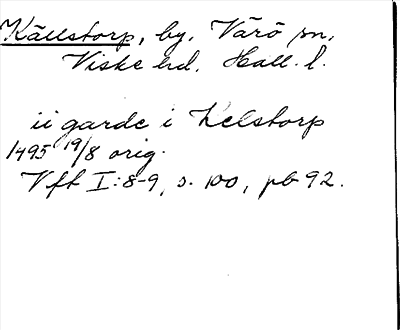 Källstorp, by, Värö sn,
Viske hd. Hall. l.
ii garde i Kelstorp
1495 19/8 orig.
Vfl I:8-9, s. 100, pb 92.